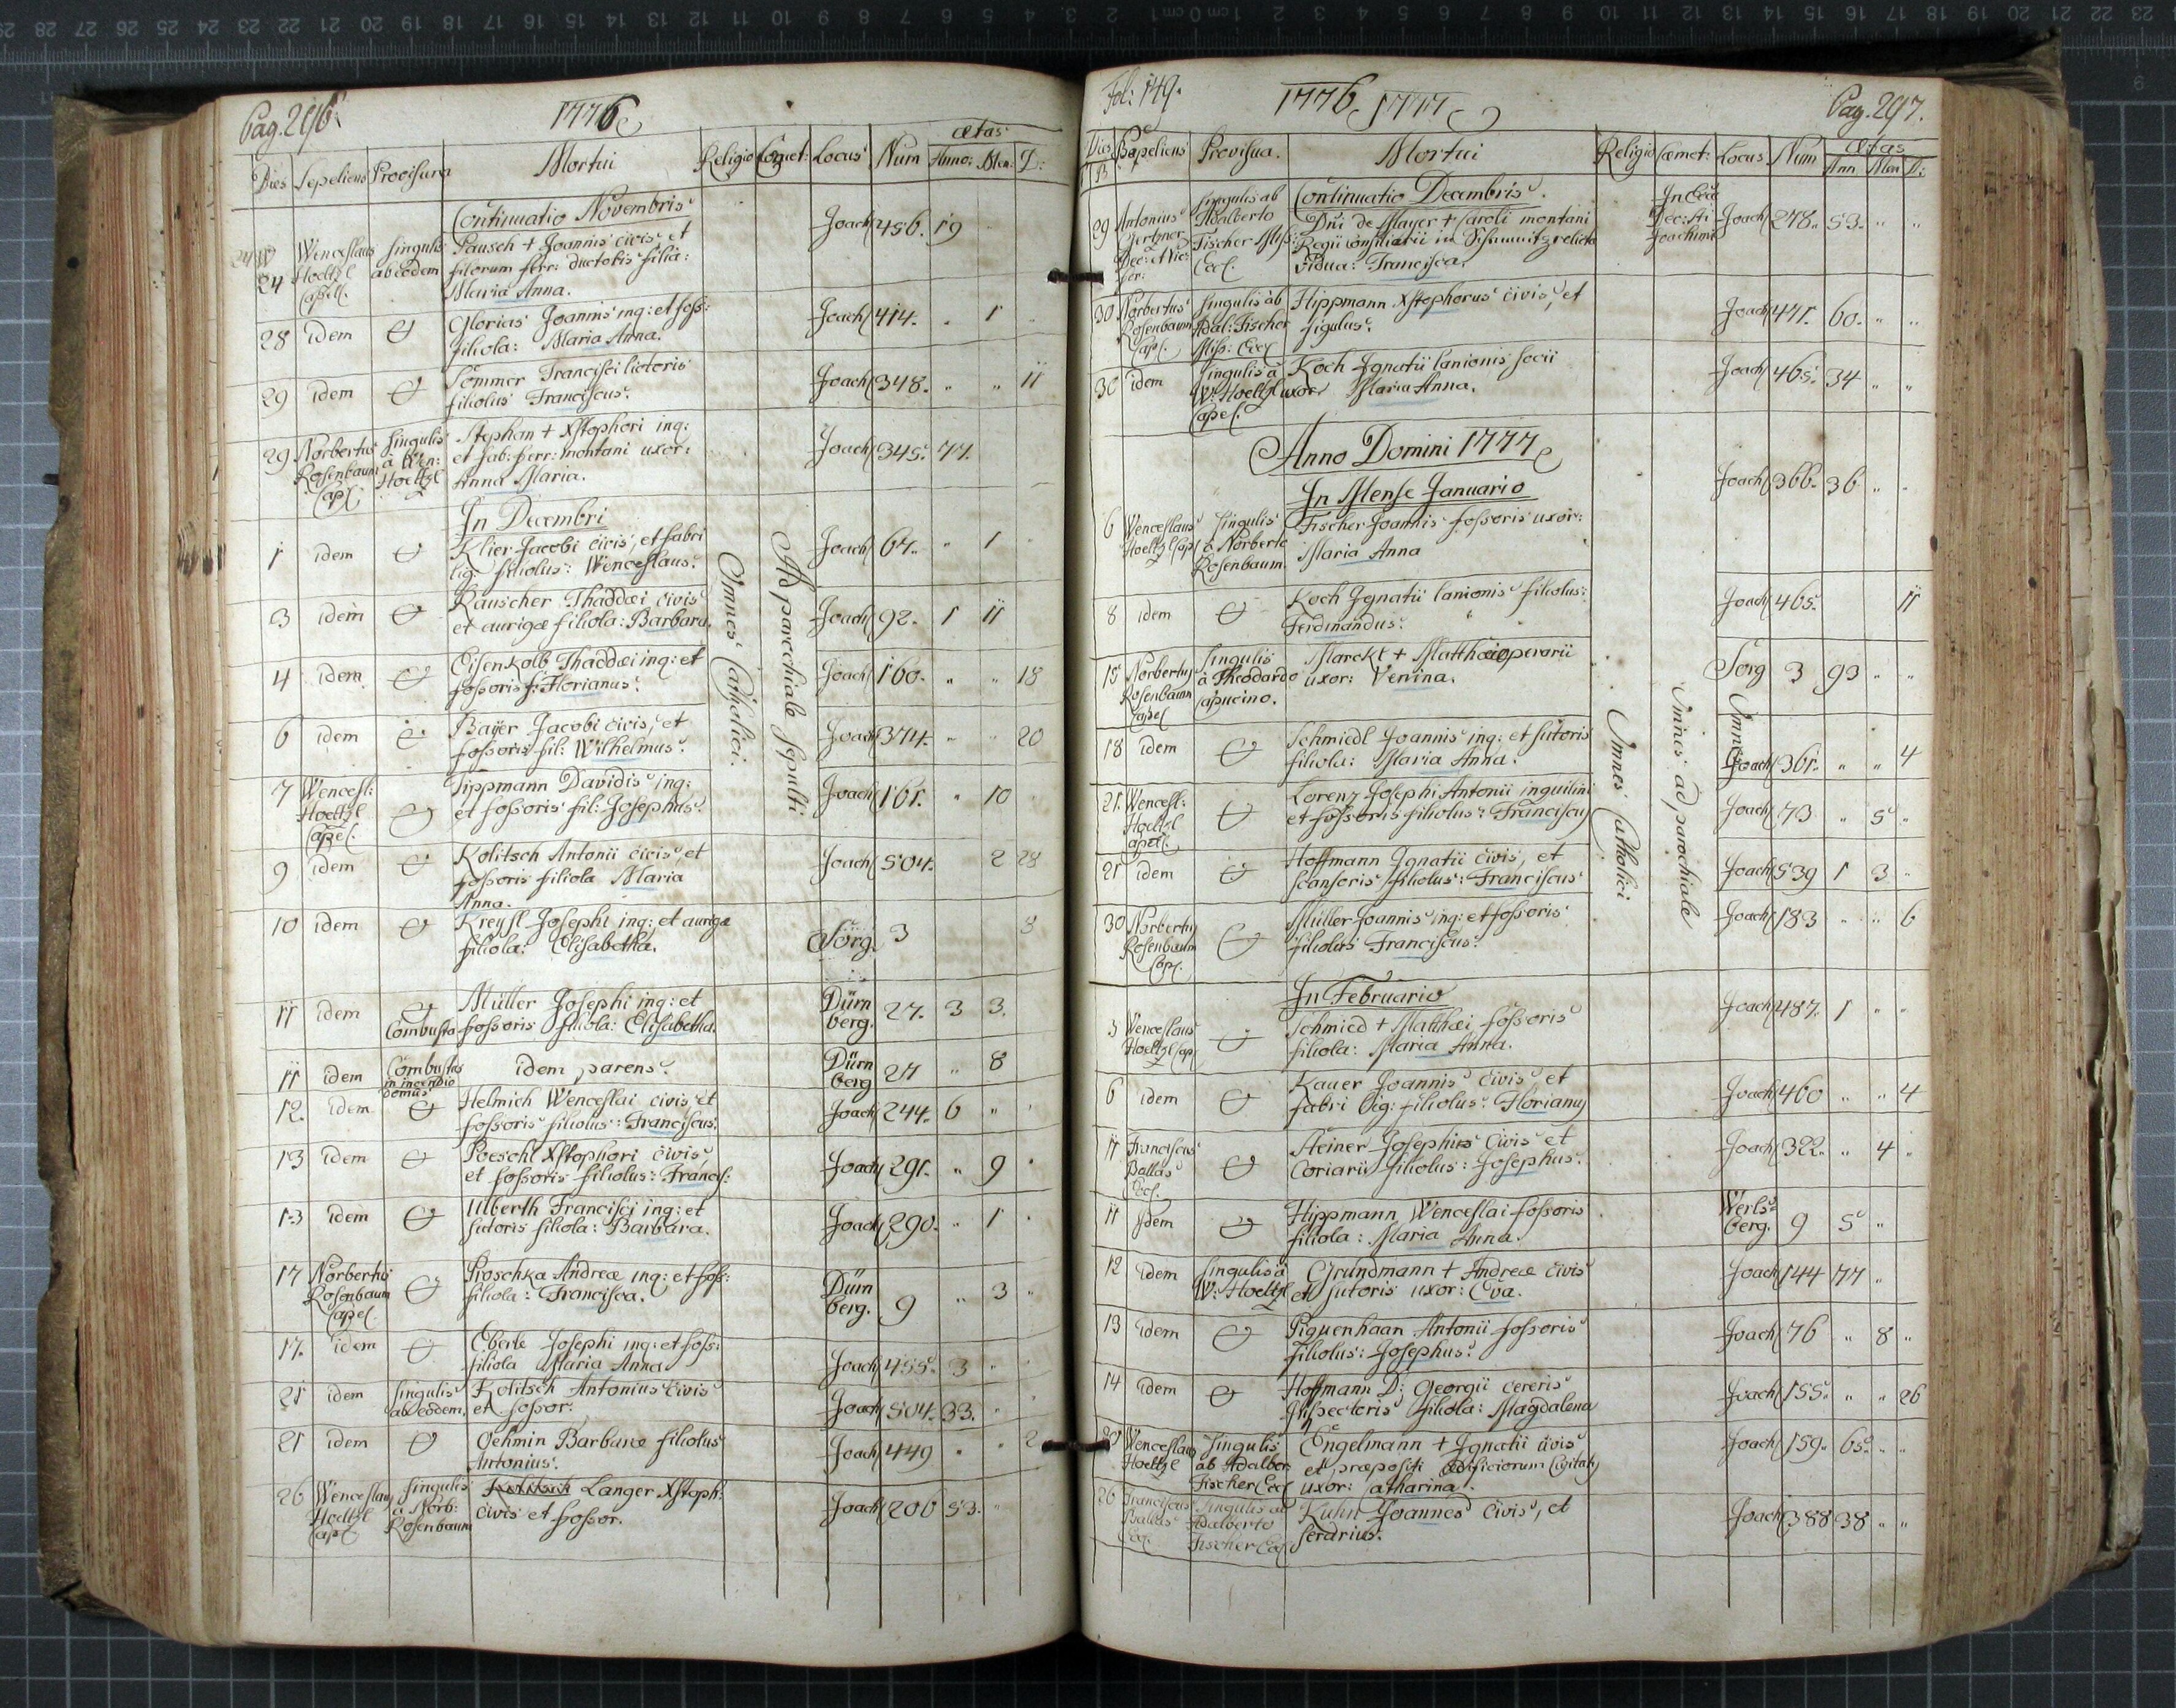 Pag. 296.
1776
ætas
Dies Sepeliens Provisura Mortui Religio Cœmet: Locus Num Anno: Men: D:
Continuatio Novembris
24 Wenceslaus Hoeltzl Capell. singulis ab eodem Pausch + Joannis civis et Joach 456. 19
filorum ferr: ductoris filia:
Maria Anna.
28 idem & Glorias Joannis inq: et foss: Joach 414. . 1
filiola: Maria Anna.
29 idem & Sommer Francisci lictoris Joach 348. " " 11
filiolus Franciscus.
29 Norbertus Rosenbaum Cap. singulis à Wen: Hoeltzl Stephan + Xstophori inq: Joach 345. 77.
et fab: ferr: montani uxor:
Anna Maria.
In Decembri
1 idem & Klier Jacobi civis, et fabri Joach 67. " 1
lig: filiolus: Wenceslaus.
3 idem & Rauscher Thaddæi civis Joach 92. 1 11
et aurigæ filiola: Barbara.
4 idem & Eisenkolb Thaddæi inq: et Joach 160. " " 18
fossoris f: Florianus.
6 idem & Bayer Jacobi civis, et Joach 374. " " 20
fossoris fil: Wilhelmus.
7 Wencesl: Hoeltzl Capel. & Tippmann Davidis inq: Joach 161. " 10
et fossoris fil: Josephus.
9 idem & Kolitsch Antonii civis, et Joach 504. 2 28
fossoris filiola Maria
Anna.
10 idem & Kreysl Josephi inq: et aurigæ Sorg. 3 3
filiola: Elisabetha.
11 idem & Combusta Müller Josephi inq: et Dürnberg. 27. 3 3.
fossoris filiola: Elisabetha.
11 idem Combustus in incendio domus idem parens. Dürnberg 27 " 8
12. idem & Helmich Wenceslai civis et Joach 244. 6 "
fossoris filiolus: Franciscus.
13 idem & Poeschl Xstophori civis, Joach 291. " 9
et fossoris filiolus: Francis:
13 idem & Ulberth Francisci inq: et Joach 290. " 1
sutoris filiola: Barbara.
17 Norbertus Rosenbaum Capel. & Proschka Andreæ inq: et foss: Dürnberg. 9 " 3 "
filiola: Francisca.
17. idem & Eberle Josephi inq: et foss: Joach 455. 3 "
filiola Maria Anna
21 idem singulis ab eodem. Kolitsch Antonius civis Joach 504. 33. "
et fossor.
21 idem & Oehmin Barbaræ filiolus Joach 449 " " 2
Antonius.
26 Wenceslaus Hoeltzl Cap. singulis à Norb: Rosenbaum Kolitsch Langer Xstoph: Joach 206 53. "
civis et fossor.
Omnes Catholici.
Ad parochiale sepulti.
Fol: 149.
1776. 1777
Pag. 297.
Dies Sepeliens Provisura. Mortui Religio Cœmet: Locus Num Ætas Ann Men D:
Continuatio Decembris.
29 Antonius singulis ab Adalberto Fischer Miss: Eccl. Dni de Mayer + Caroli montani Joach 278. 53. " "
Regii consiliarii in relicta
vidua: Francisca.
30 Norbertus Rosenbaum Cap. singulis ab Adal: Fischer Miss: Eccl Hippmann Xstophorus civis, et Joach 471. 60. " "
figulus.
30 idem singulis à W: Hoeltzl Capel. Koch Ignatii lanionis socii Joach 465. 34 " "
uxor Maria Anna.
Anno Domini 1777
In Mense Januario
6 Wenceslaus Hoeltzl Cap singulis à Norberto Rosenbaum Fischer Joannis fossoris uxor: Joach 366. 36 " "
Maria Anna
8 idem & Koch Ignatii lanionis filiolus: Joach 465. 11
Ferdinandus.
15 Norbertus Rosenbaum Capel singulis à Theodardo Capucino. Marckt + Matthæi operarii Sorg 3 93 " "
uxor: Venina.
18 idem & Schmiedl Joannis inq: et sutoris Joach 361. " " 4
filiola: Maria Anna.
21. Wencesl: Hoeltzl Capel. & Lorenz Josephi Antonii inquilini Joach 73 " 5 "
et fossoris filiolus: Franciscus
21 idem & Hoffmann Ignatii civis, et Joach 539 1 3 "
scansoris filiolus: Franciscus
30 Norbertus Rosenbaum Cap. & Müller Joannis inq: et fossoris Joach 183 " " 6
filiolus Franciscus.
In Februario
3 Wenceslaus Hoeltzl Cap & Schmied + Matthæi fossoris Joach 487. 1 " "
filiola: Maria Anna.
6 idem & Kauer Joannis civis et Joach 460 " " 4
fabri lig: filiolus: Florianus
11 Franciscus Ballas Eccl. & Steiner Josephi civis et Joach 322. " 4 "
Coriarii filiolus: Josephus.
11 Idem & Hippmann Wenceslai fossoris Werlsberg. 9 5 "
filiola: Maria Anna.
12 idem singulis à W: Hoeltzl Grundmann + Andreæ civis Joach 144 77 "
et sutoris uxor: Eva.
13 idem & Piquenhaan Antonii fossoris Joach 76 " 8 "
filiolus: Josephus.
14 idem & Hoffmann D: Georgii cereris Joach 155. " " 26
Inspectoris filiola: Magdalena
20 Wenceslaus Hoeltzl singulis ab Adalber: Fischer Eccl Engelmann + Ignatii civis Joach 159. 65. " "
et præpositi ædificiorum Civitatis
uxor: Catharina.
26 Franciscus Ballas Eccl. singulis ab Adalberto Fischer Eccl Kuhn Joannes civis, et Joach 388 38 " "
serarius.
Omnes Catholici
Omnes ad parochiale